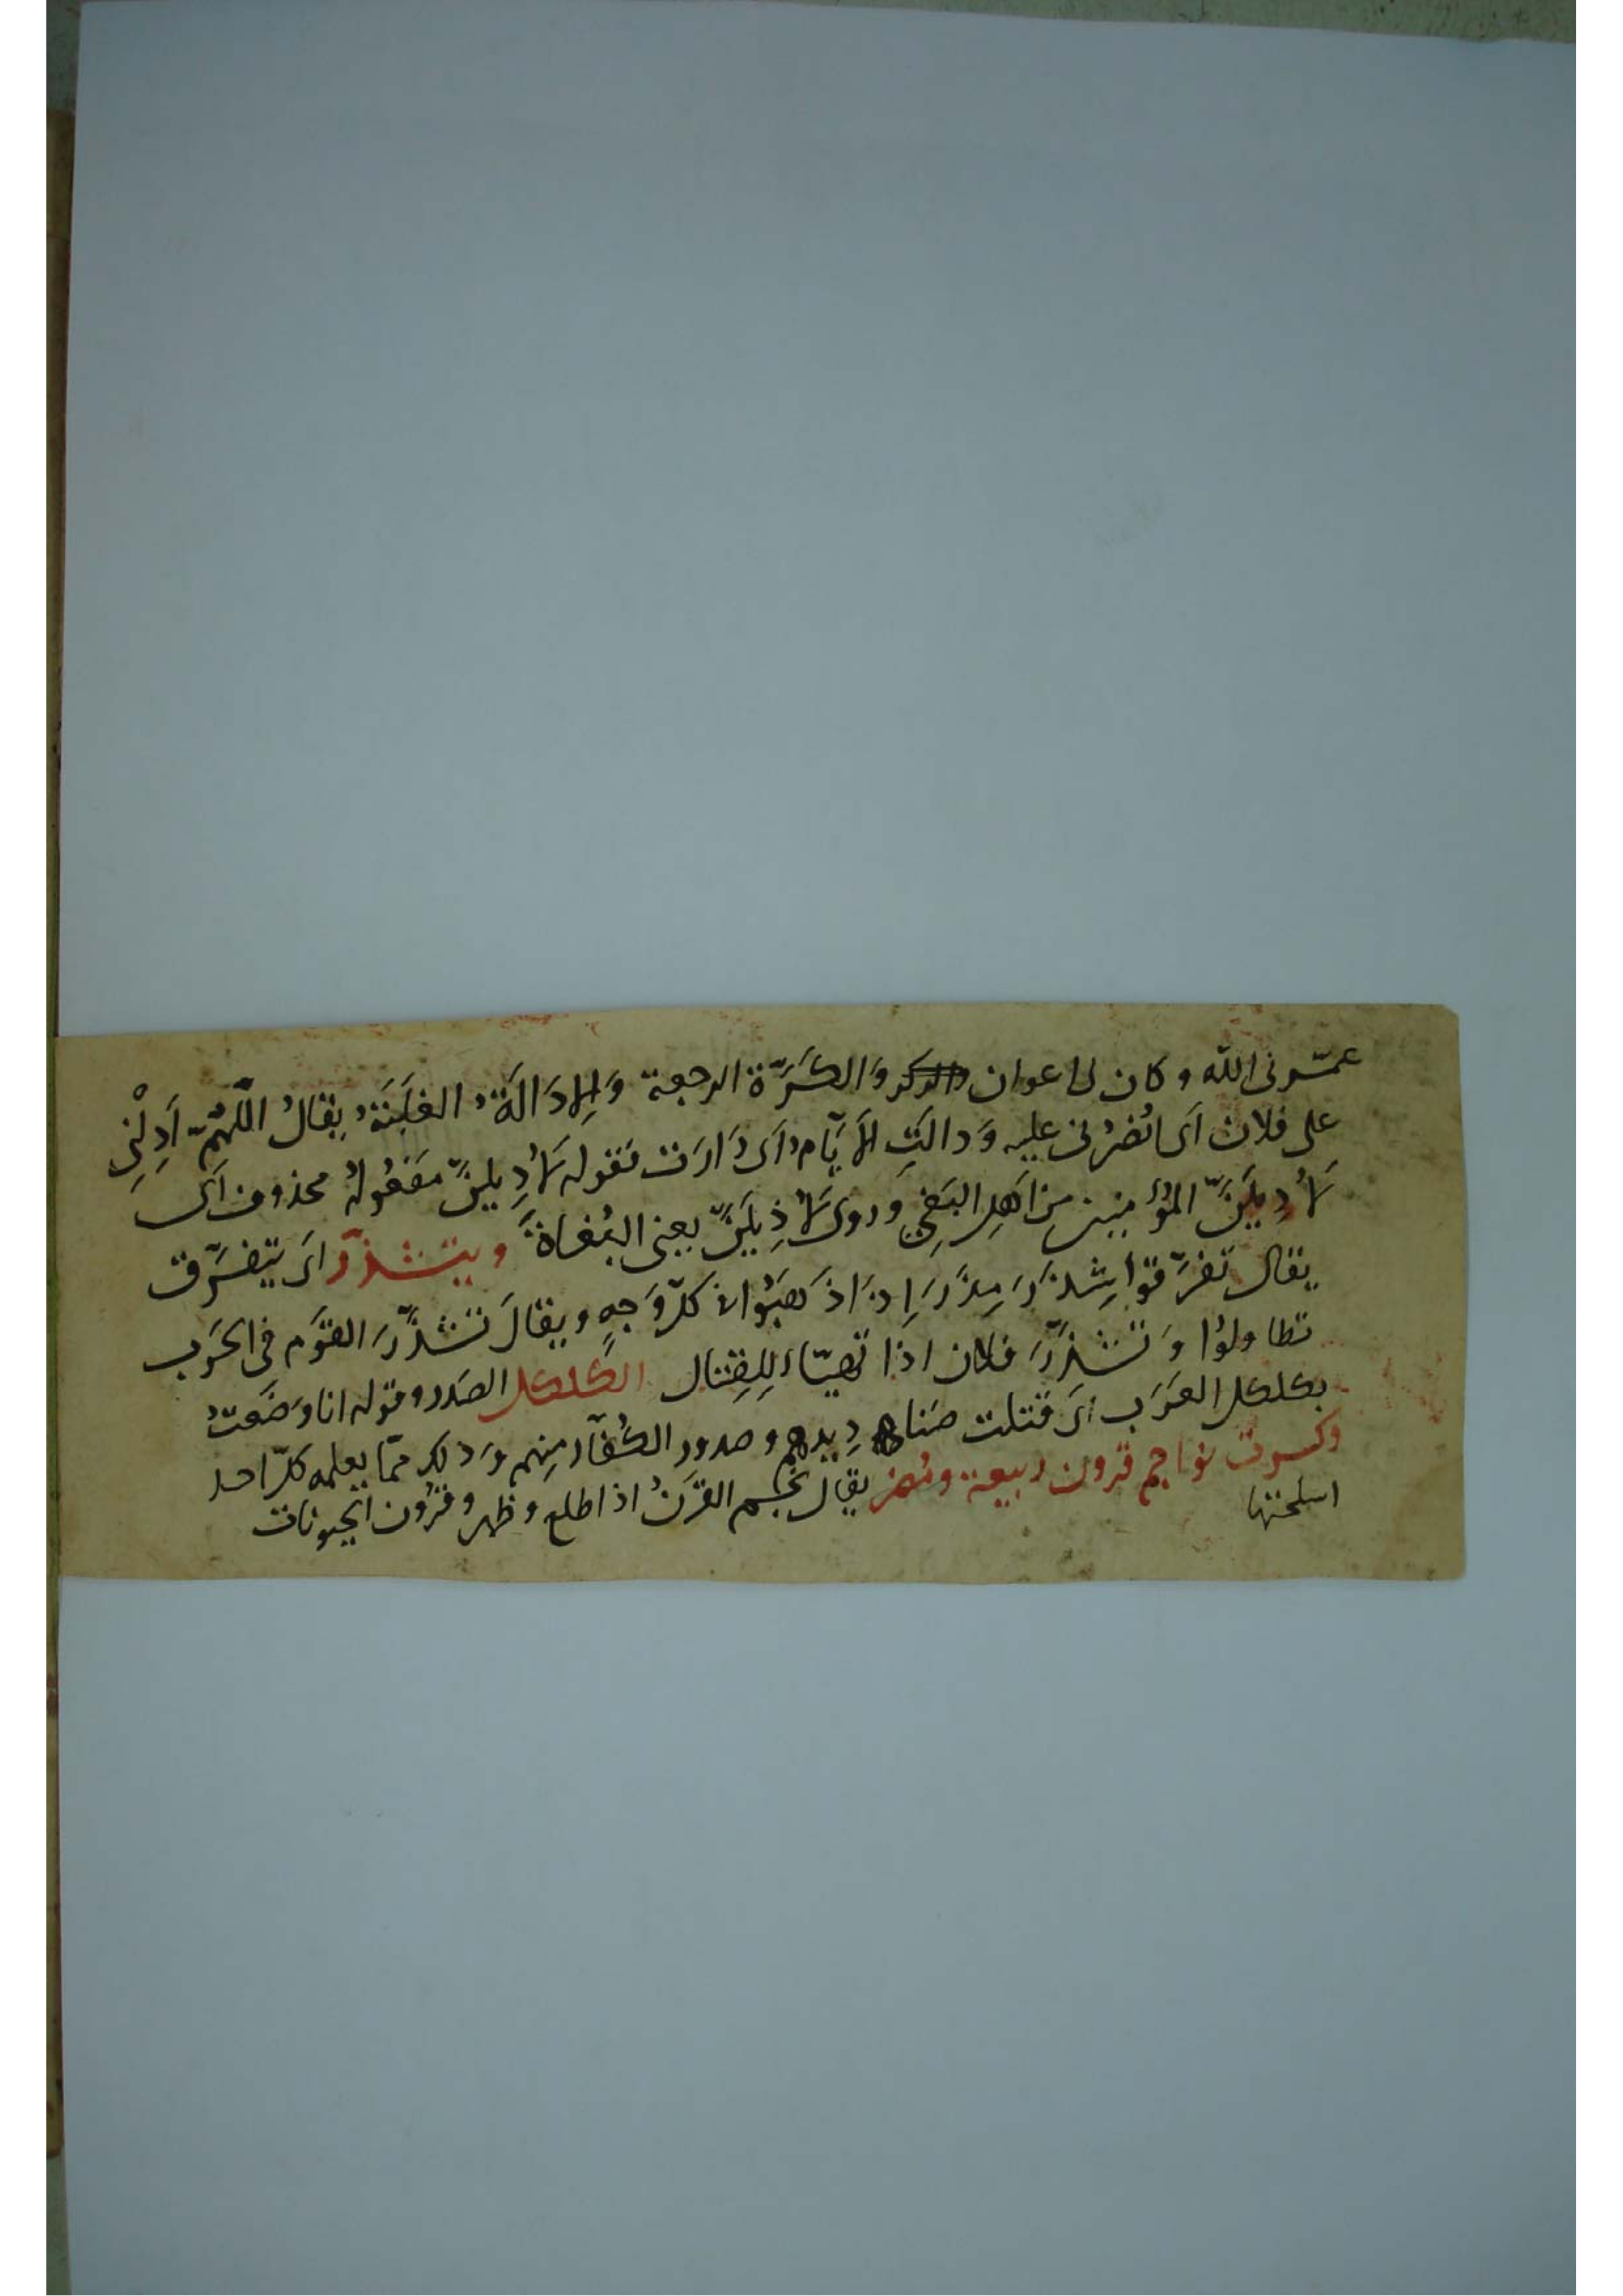 عمّرنى الله و كان لى اعوان والكَرَّة الرجعة وَالِادَالَةُ الغَلَبَةُ يقالُ اللّهمّ اَدِلْنِى
على فلان اَى انْصُرْنى عليه وَ دالَتِ الاَيّام اى دَارَت فقوله لَاُدِيلَنَّ مفعُولُهُ محذوف اَى
لَاُدِيلَنَّ المؤمنين مِن اَهلِ البَغىِ وَ روى لَاُذِيلَنَّ يعنى البُغاةَ ويتشذّر اى يتفرَّق
يقال تفرّقوا شِذَرَ مِذَرَ اِذا ذهَبُوا فى كلّ وَجهٍ و يقالَ تشذَّرَ القَوم فى الحَرب
تطاولُوا وَ تشذَّرَ فلان اذا تهيّاء لِلقِتال الكلكل الصَدر و قوله انا وَضَعتُ
بكلكل العَرَب اى قتلت صَناديدهم و صدور الكُفّار مِنهم وَ ذلك ممّا يعلمه كلّ احد
وكسرت نواجم قرون ربيعة ومُضر يقال نجم القَرنُ اذا طلع و ظهر و قرُون الحيونات
اسلحتها